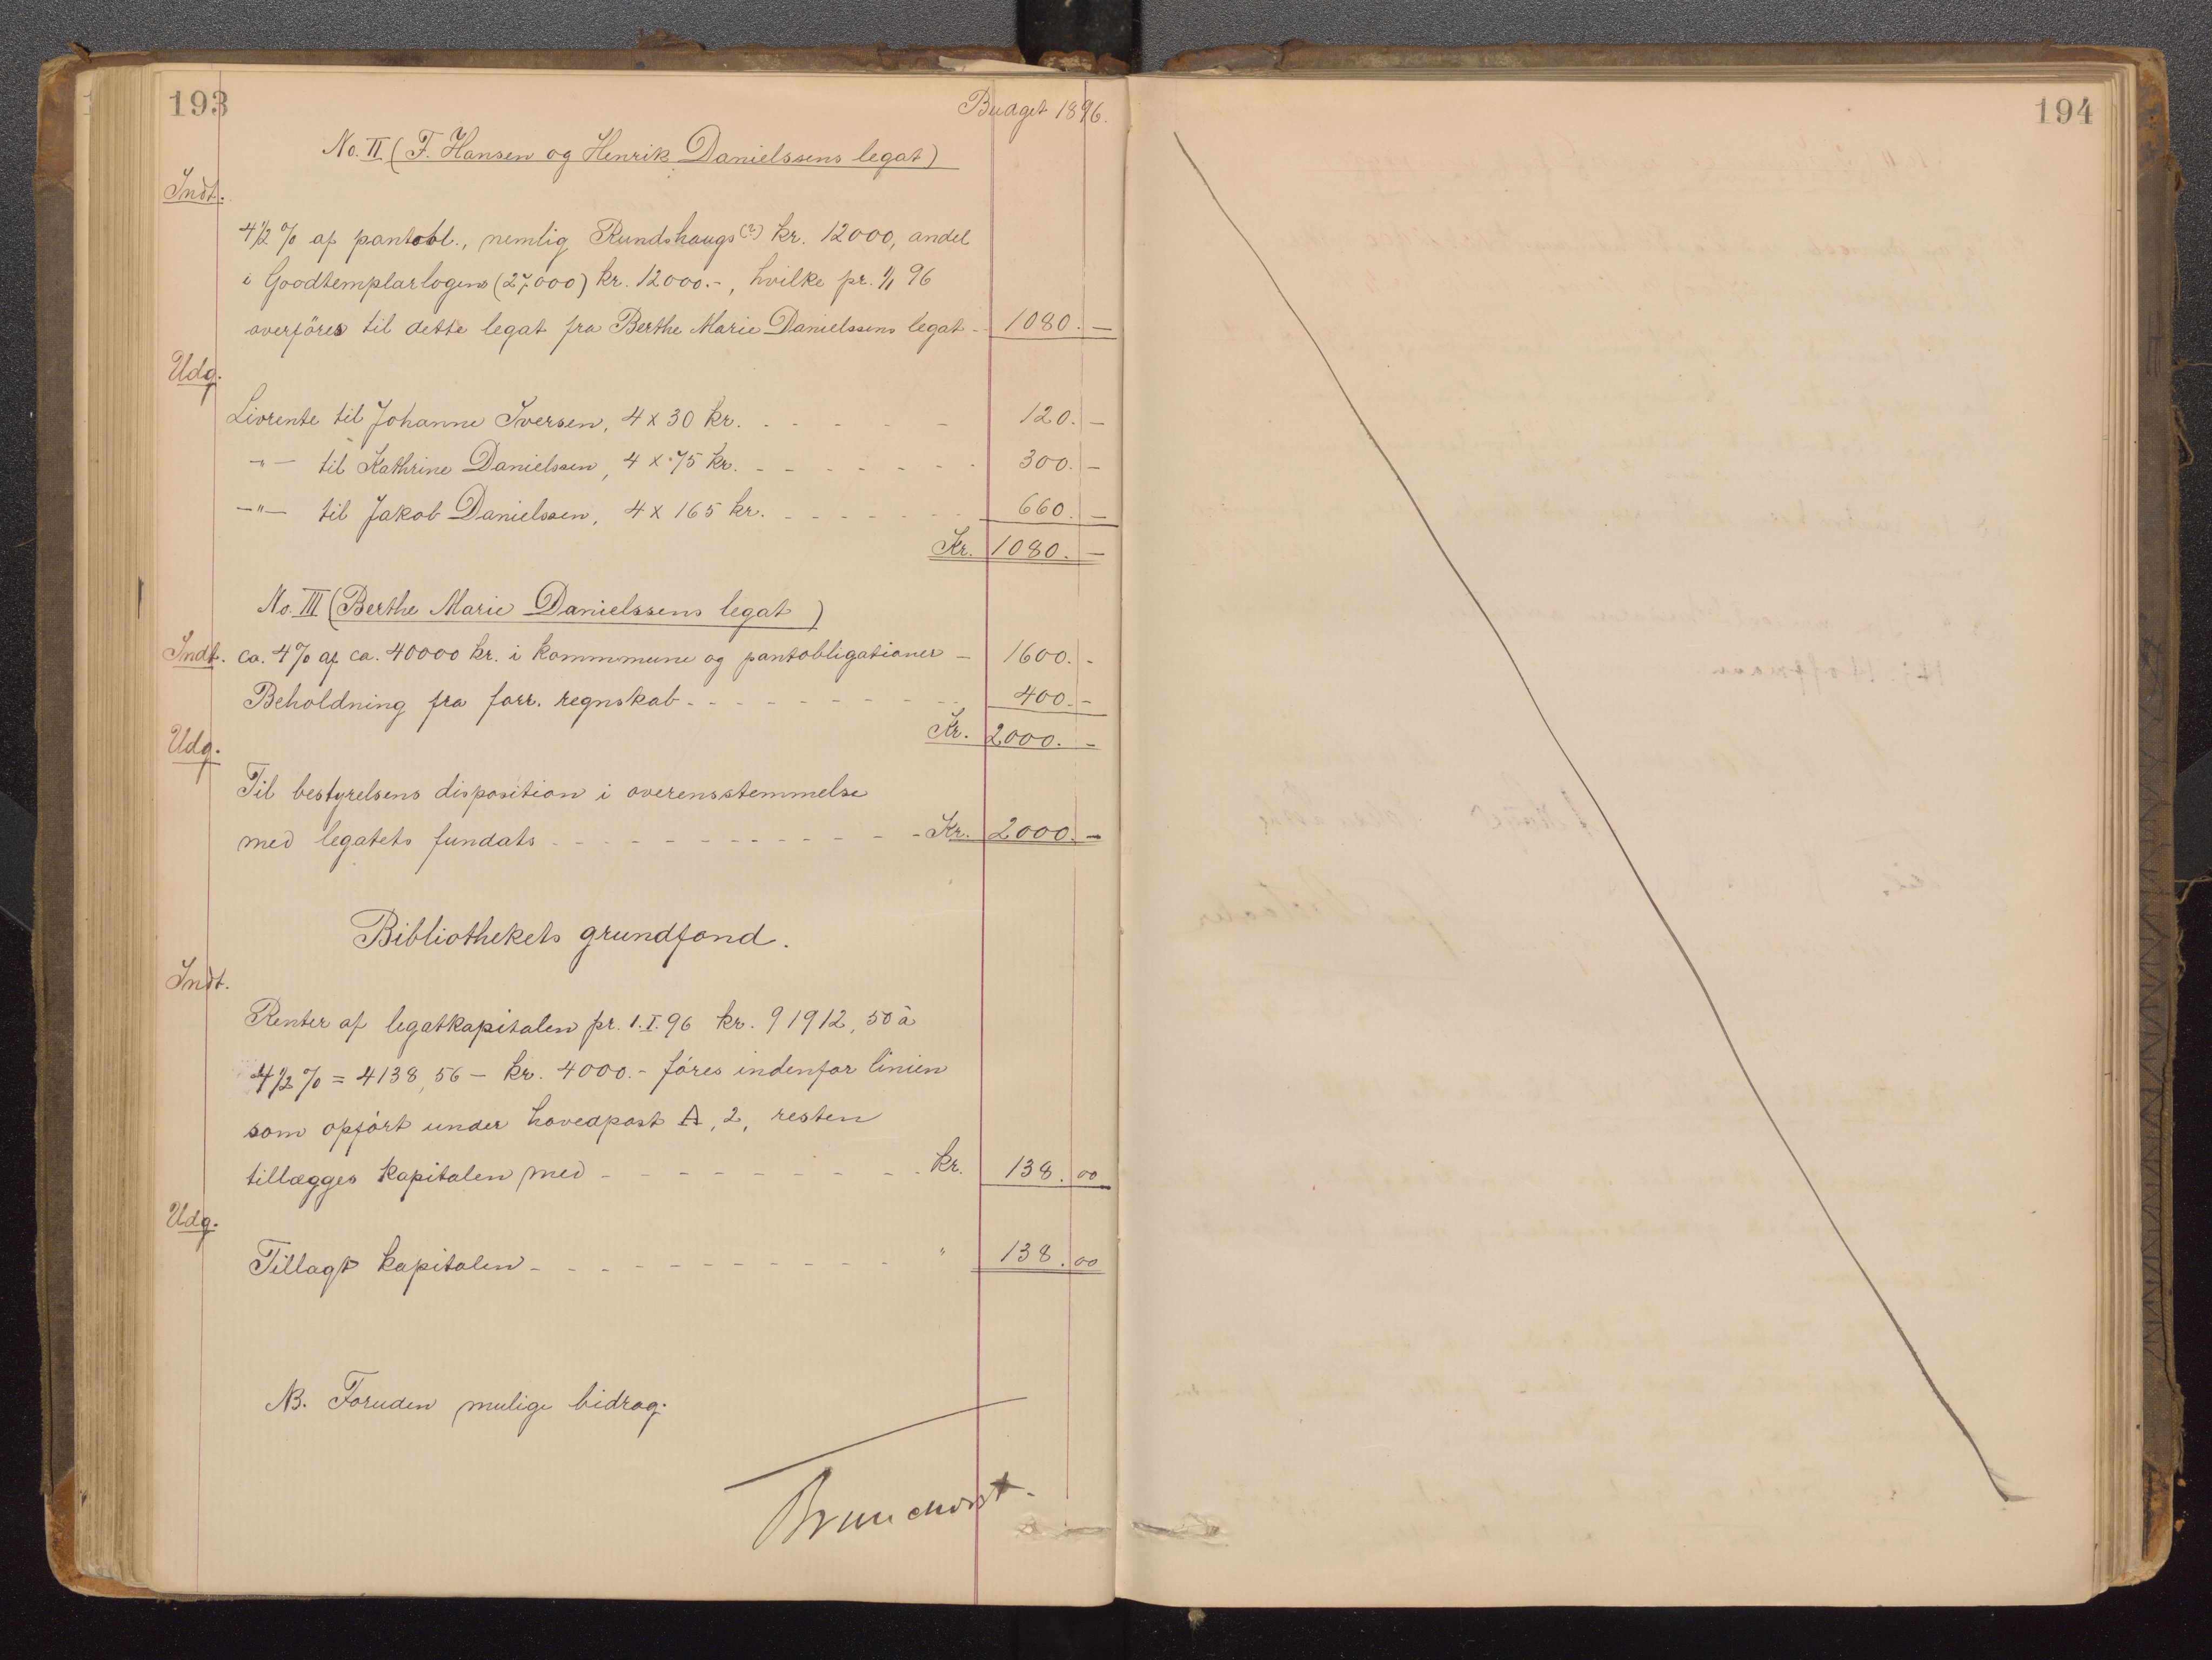 193
Budget 1896.
No. II (F. Hansen og Henrik Danielssens legat)
Indt.
4½ % af pantobl., nemlig Rundshaugs (?) kr. 12000, andel
i Goodtemplarlogens (27,000) kr. 12000.-, hvilke pr. 1/1 96
overföres til dette legat fra Berthe Marie Danielssens legat - 1080. —
Udg.
Livrente til Johanne Iversen, 4 x 30 kr. - - - - - - 120. —
—"— til Kathrine Danielssen, 4 x 75 kr. - - - - - - - 300. —
—"— til Jakob Danielssen, 4 x 165 kr. - - - - - - - 660. —
Kr. 1080. —
No. III (Berthe Marie Danielssens legat)
Indt. ca. 4 % af ca. 40000 kr. i kommmune og pantobligationer - 1600. -
Beholdning fra forr. regnskab - - - - - - - - - 400. -
Kr. 2000. -
Udg.
Til bestyrelsens disposition i overensstemmelse
med legatets fundats - - - - - - - - - - Kr. 2000. -
Bibliothekets grundfond.
Indt.
Renter af legatkapitalen pr. 1. I. 96 kr. 91912,50 à
4½ % = 4138,56 — kr. 4000.- föres indenfor linien
som opfört under hovedpost A, 2, resten
tillægges kapitalen med - - - - - - - - - kr. 138. 00
Udg.
Tillagt kapitalen - - - - - - - - - - " 138. 00
NB. Foruden mulige bidrag.
Brunchorst.
194